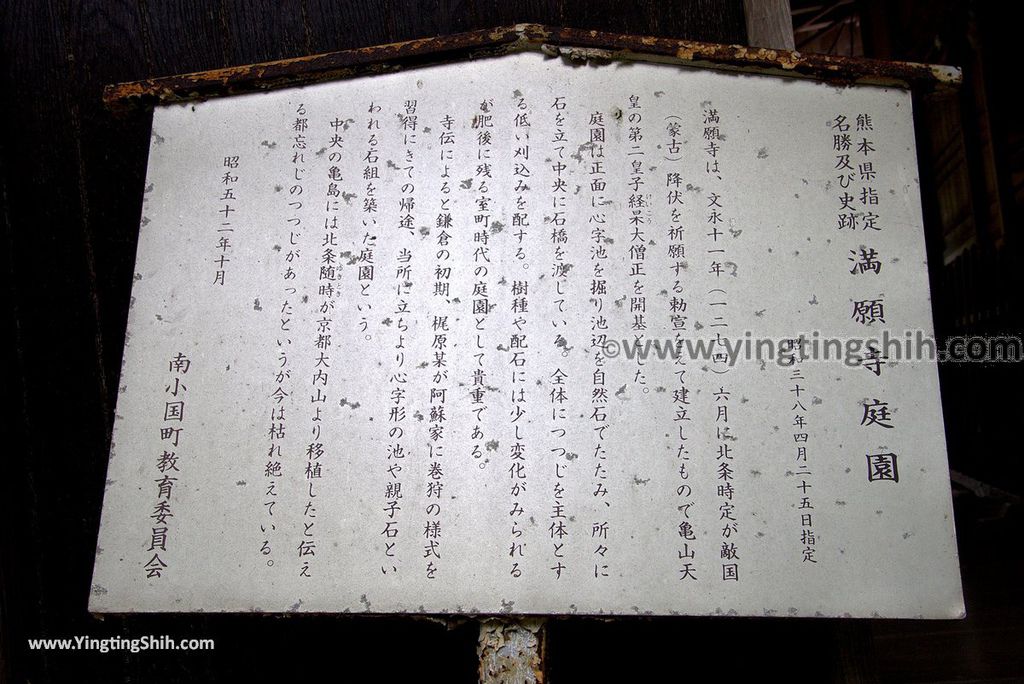 熊本県指定
名勝及び史跡
満願寺庭園
昭和三十八年四月二十五日指定
満願寺は、文永十一年（一二七四）六月に北条時定が敵国
（蒙古）降伏を祈願する勅宣をえて建立したもので亀山天
皇の第二皇子経杲大僧正を開基とした。
けいこう
庭園は正面に心字池を掘り池辺を自然石でたたみ、所々に
石を立て中央に石橋を渡している。全体につつじを主体とす
る低い刈込みを配する。樹種や配石には少し変化がみられる
が肥後に残る室町時代の庭園として貴重である。
寺伝によると鎌倉の初期、梶原某が阿蘇家に巻狩の様式を
習得にきての帰途、当所に立ちより心字形の池や親子石とい
われる石組を築いた庭園という。
中央の亀島には北条随時が京都大内山より移植したと伝え
ゆきとき
る都忘れじのつつじがあったというが今は枯れ絶えている。
昭和五十二年十月
南小国町教育委員会
©www.yingtingshih.com
www.YingtingShih.com